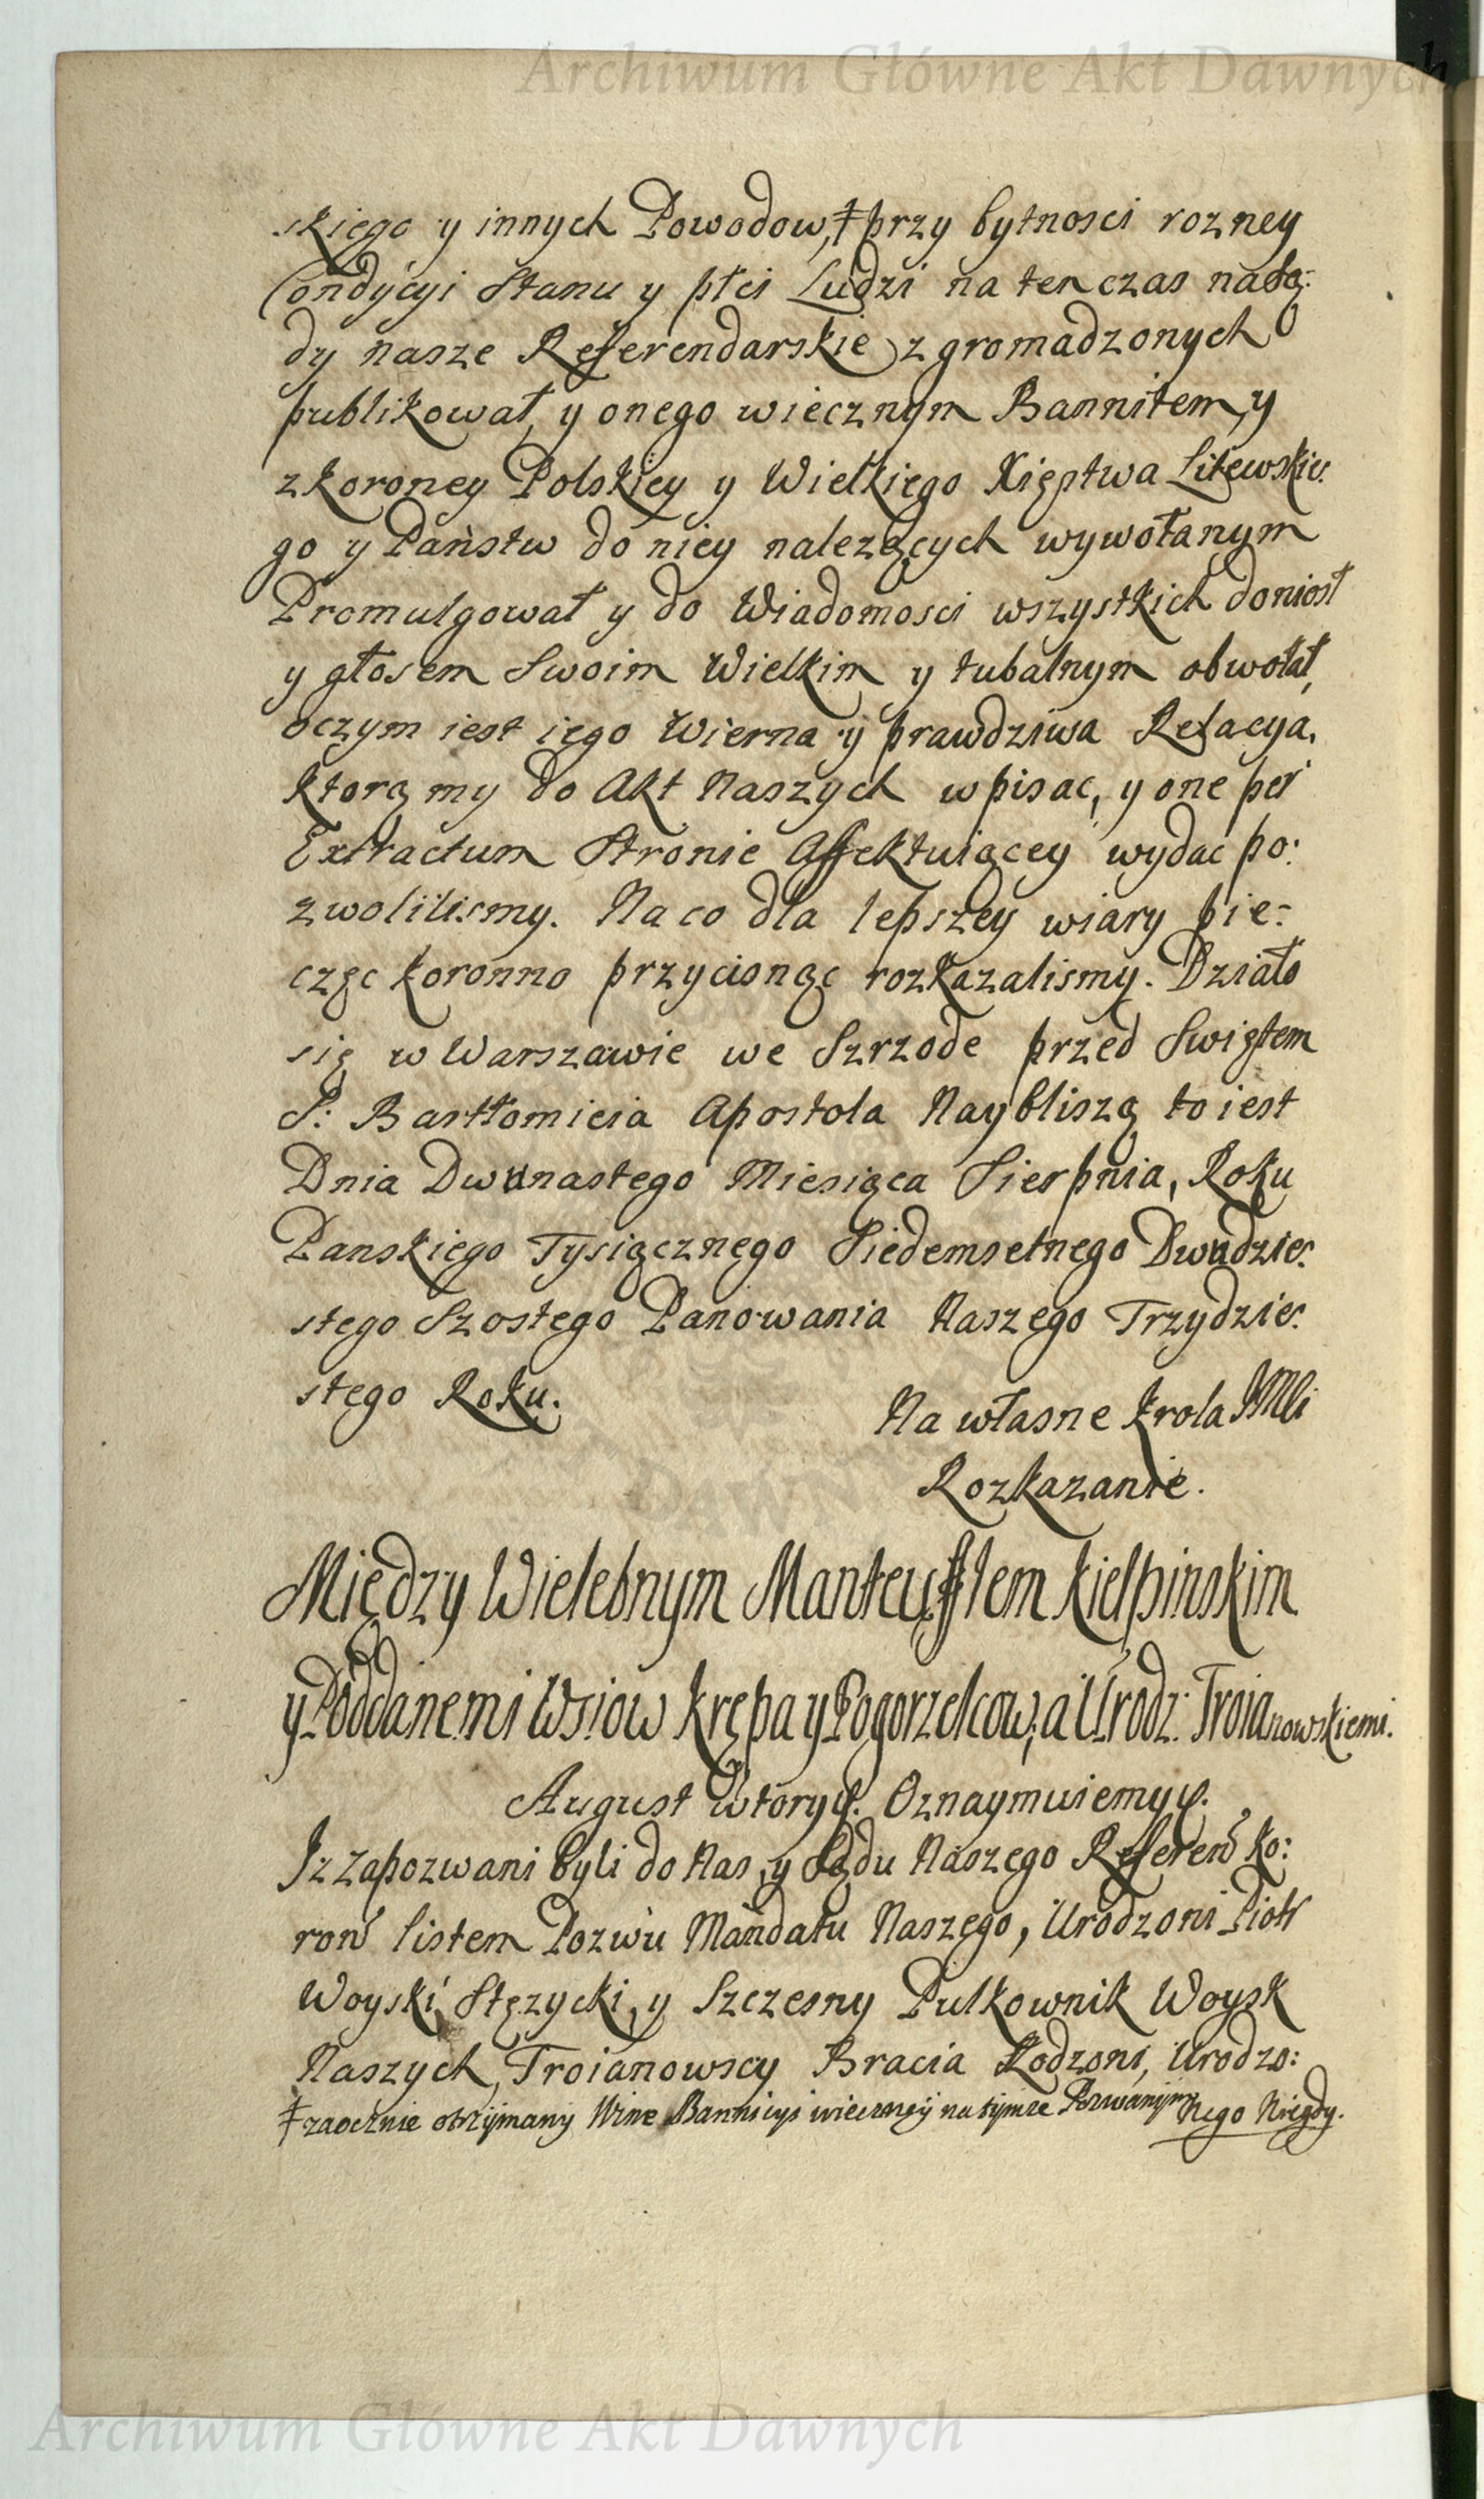 Archiwum Główne Akt Dawnych
skiego y innych Powodow,‡ przy bytnosci rozney
Condycyi Stanu y płci Ludzi na ten czas na Są:
dy nasze Referendarskie zgromadzonych
publikował, y onego wiecznym Bannitem, y
z koroney Polskiey y Wielkiego Xięstwa Litewskie:
go y Państw do niey nalezących wywołanym
Promulgował y do Wiadomosci wszystkich doniosł
y głosem Swoim Wielkim y tubalnym obwołał,
oczym iest iego Wierna y prawdziwa Relacya,
ktorą my do Akt Naszych wpisac, y one per
Extractum Stronie Affektuiącey wydac po:
zwolilismy. Na co dla lepszey wiary pie:
częc koronno przycisnąc rozkazalismy. Działo
się w Warszawie we Szrzode przed Swiętem
S: Bartłomieia Apostola Naybliszą to iest
Dnia Dwunastego Miesiąca Sierpnia, Roku
Panskiego Tysiącznego Siedemsetnego Dwudzie:
stego Szostego Panowania Naszego Trzydzie:
stego Roku.
Na własne krola JMCi
Rozkazanie.
Między Wielebnym Manteufflem Kielpinskim
y Poddanemi Wsiow Krępa y Pogorzelcow, a Urodz: Troianowskiemi.
August Wtory. Oznaymuiemy.
Iz zapozwani byli do Nas, y Sądu Naszego Referen ko:
ron listem Pozwu Mandatu Naszego, Urodzoni Piotr
Woyski Stęzycki, y Szczesny Pulkownik Woysk
Naszych, Troianowscy Bracia Rodzoni, Urodzo:
‡ zaocznie otrzymany Winę Bannicyi wieczney na tymze Pozwanym
nego Niegdy.
Archiwum Główne Akt Dawnych